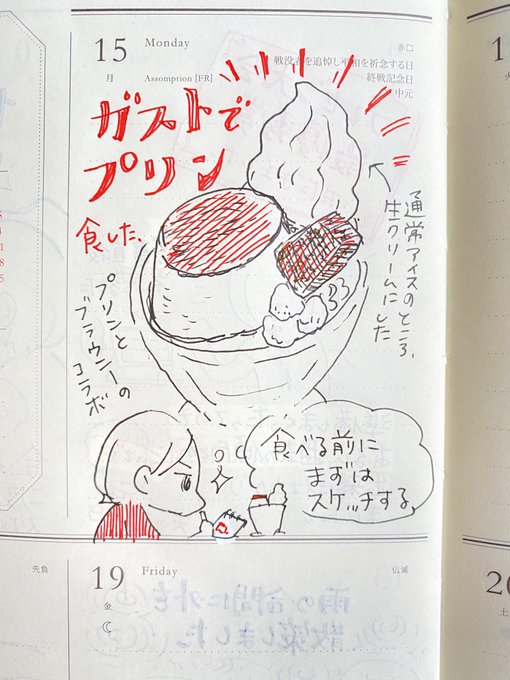 15 Monday 赤口
月 Assomption [FR]
戦没者を追悼し平和を祈念する日
終戦記念日
中元
ガストで
プリン
食した。
通常アイスのところ、
生クリームにした
プリンと
ブラウニーの
コラボ
食べる前に
まずは
スケッチする。
先負
19 Friday 仏滅
金
雨の合間に外を
散策しました。